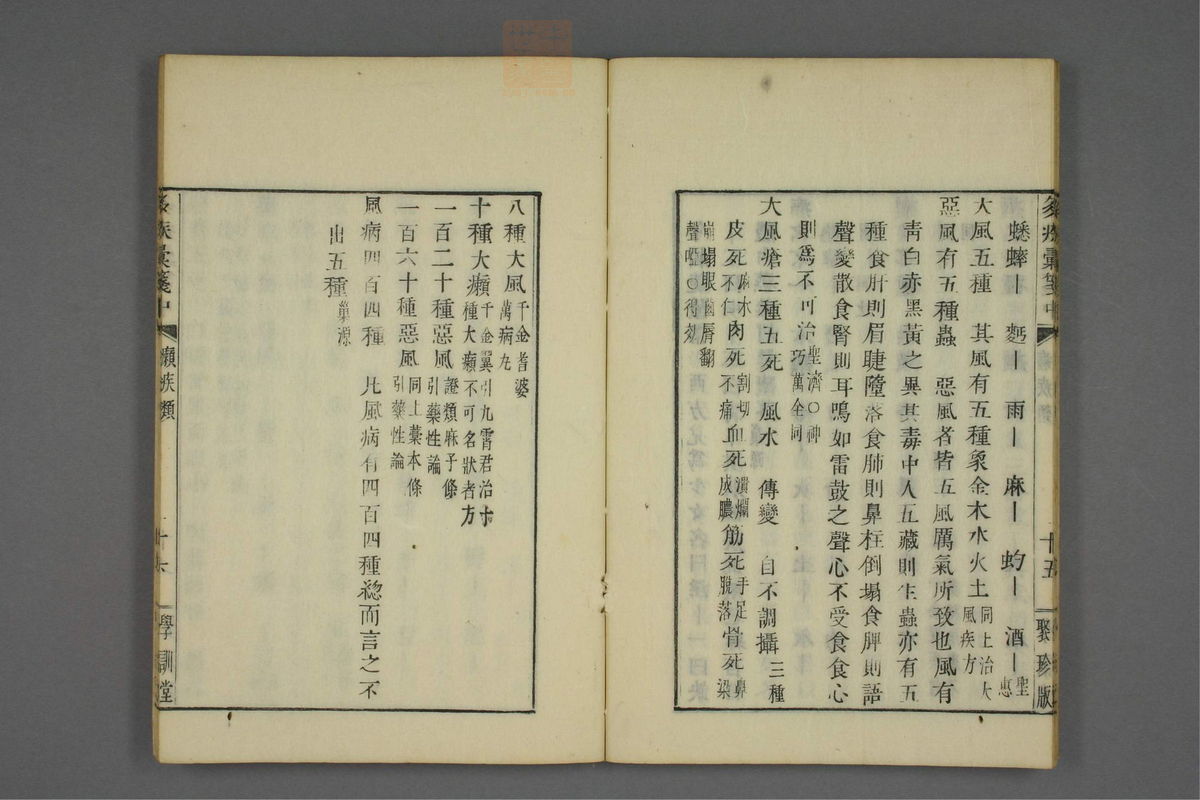 蟋蟀｜　麫｜　雨｜　麻｜　虳｜　酒｜聖惠
大風五種　其風有五種象金木水火土同上治大風疾方
惡風有五種蟲　惡風者皆五風厲氣所致也風有
青白赤黑黃之異其毒中人五藏則生蟲亦有五
種食肝則眉睫墮落食肺則鼻柱倒塌食脾則語
聲變散食腎則耳鳴如雷鼓之聲心不受食食心
則爲不可治聖濟○神巧萬全同
大風瘡三種五死　風水　傳變　自不調攝三種
皮死麻木不仁肉死割切不痛血死潰爛成膿筋死手足脫落骨死鼻梁
崩塌眼㘞脣翻聲啞○得效
彙箋中　癩疾類　十五　聚珍版
八種大風千金耆婆萬病丸
十種大癩千金翼引九霄君治十種大癩不可名狀者方
一百二十種惡風證類麻子條引藥性論
一百六十種惡風同上藁本條引藥性論
風病四百四種　凡風病有四百四種總而言之不
出五種巢源
疾彙箋中　癩疾類　十六　學訓堂